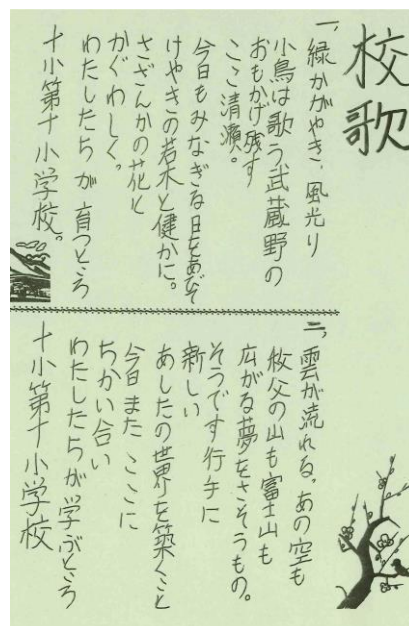 校歌
一、緑かがやき、風光り
小鳥は歌う武蔵野の
おもかげ残す
ここ清瀬。
今日もみなぎる日をあびて
けやきの若木と健かに。
さざんかの花と
かぐわしく。
わたしたちが育つところ
十小第十小学校。
二、雲が流れる。あの空も
秩父の山も富士山も
広がる夢をさそうもの。
そうです行手に
新しい
あしたの世界を築くこと
今日またここに
ちかい合い
わたしたちが学ぶところ
十小第十小学校